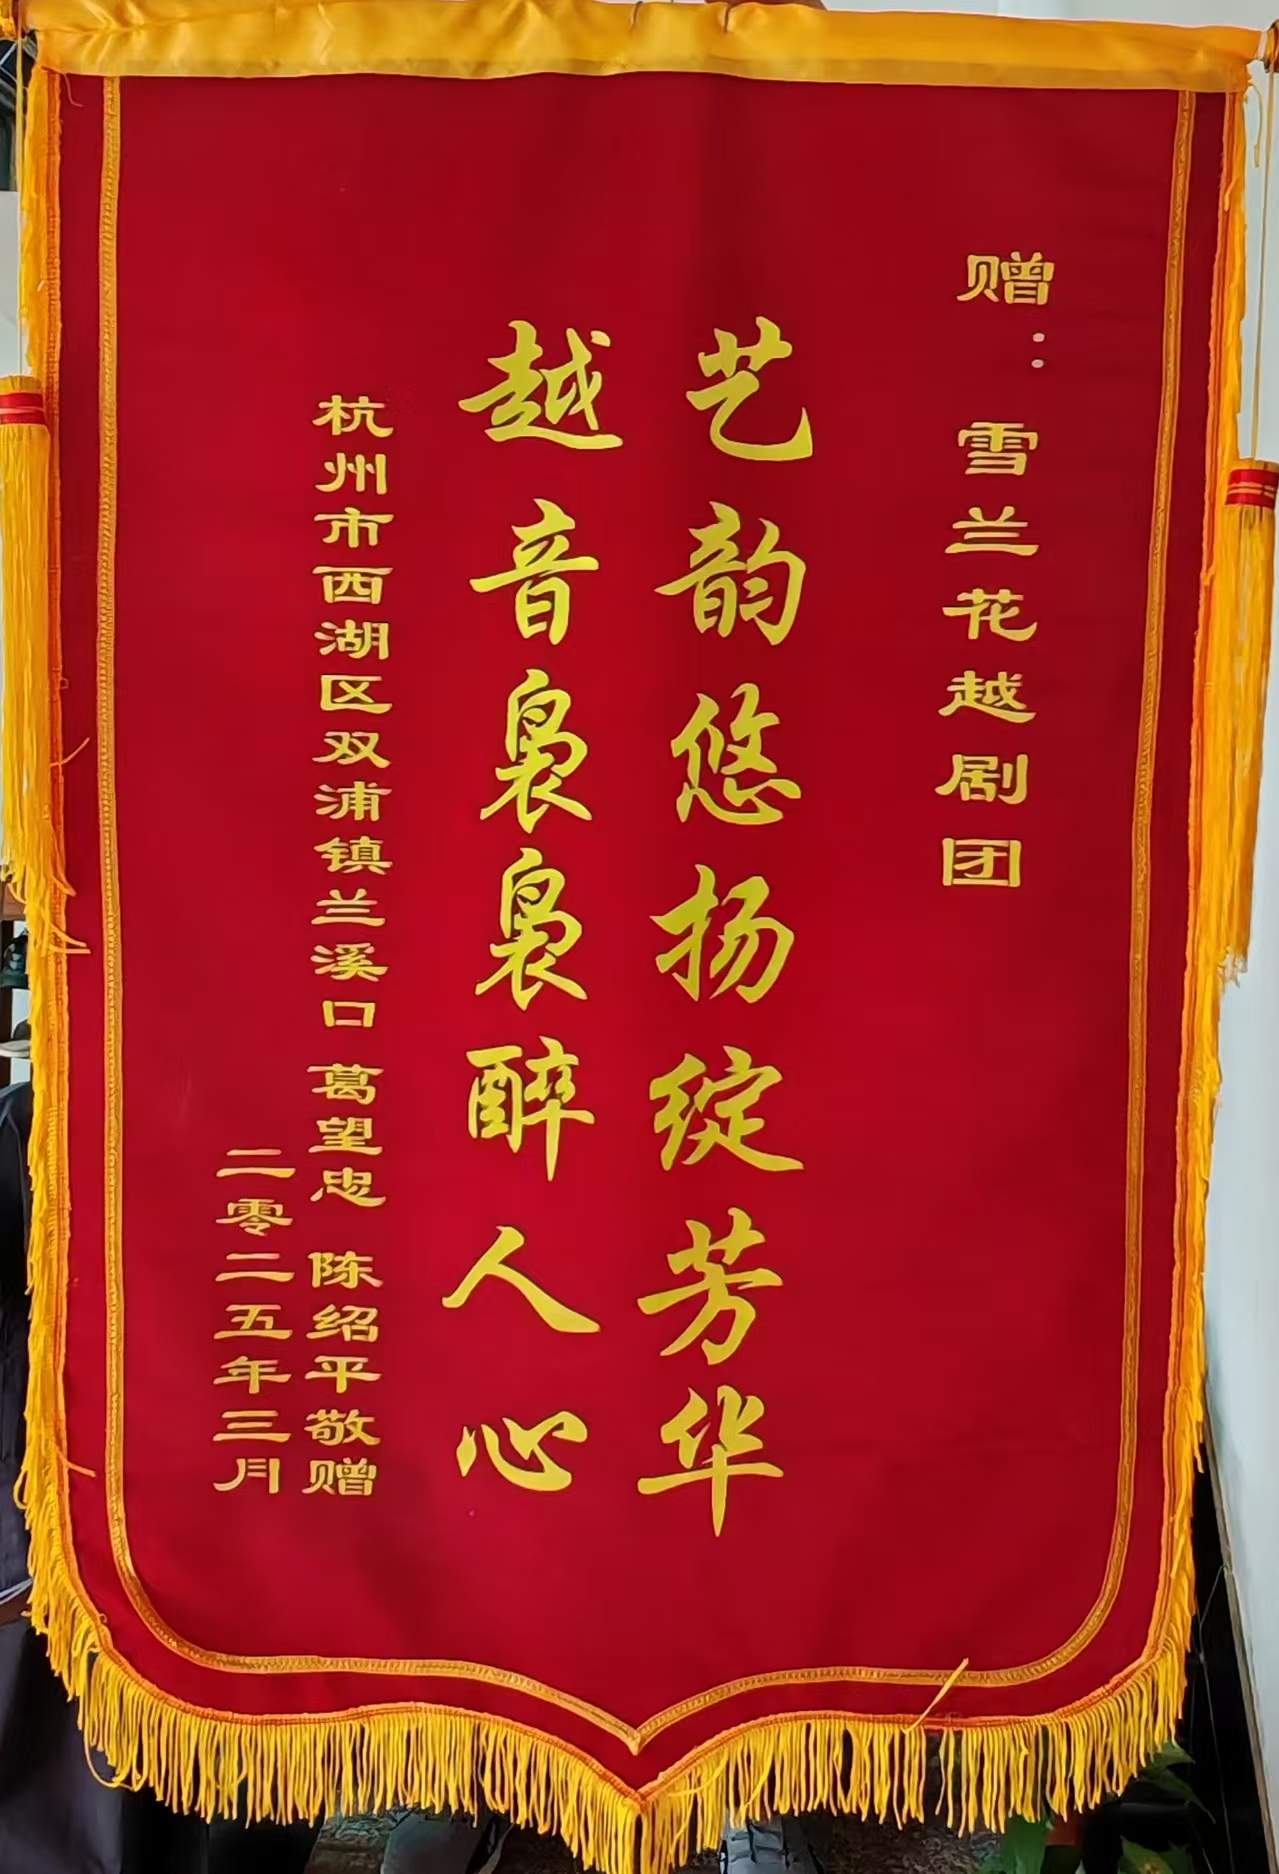 赠：雪兰花越剧团
艺韵悠扬绽芳华
越音袅袅醉人心
杭州市西湖区双浦镇兰溪口 葛望忠 陈绍平敬赠
二零二五年三月